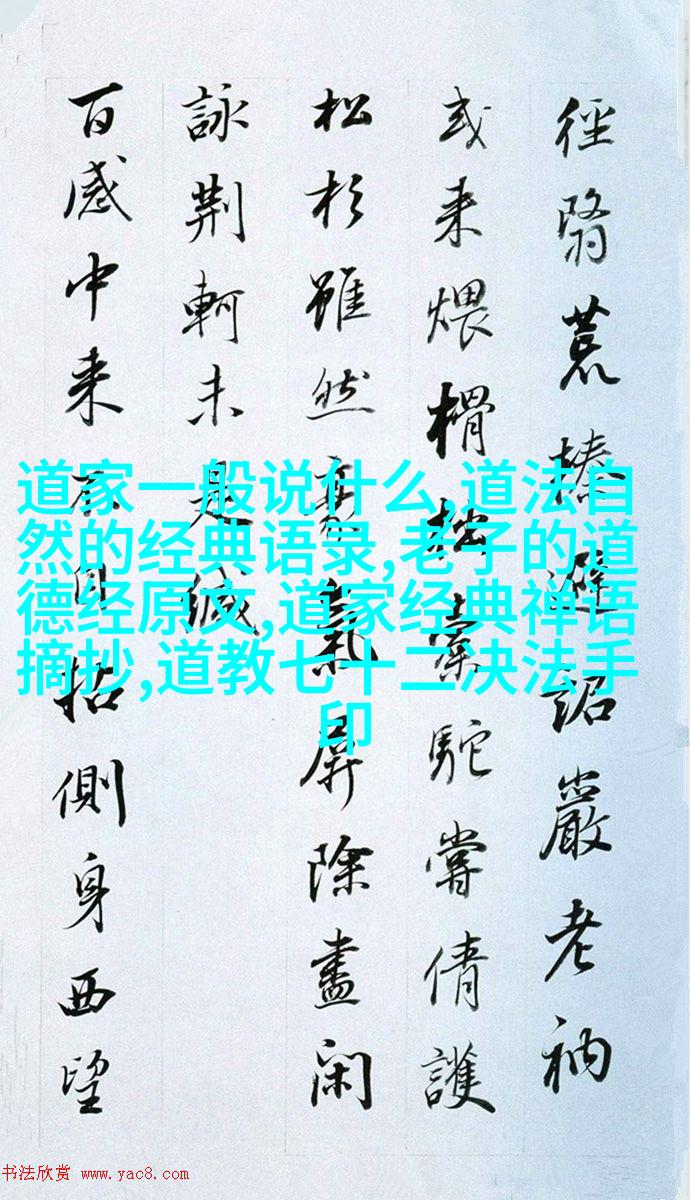 徑翳荒榛避詔巖老衲
或来煨榾柮橐駝嘗倩護
松杉雖然豪氣屏除盡閑
詠荆軻未是緘
百感中来不自招側身西望
道家一般说什么,道法自
然的经典语录,老子的道
德经原文,道家经典禅语
摘抄,道教七十二决法手
印
书法欣赏 www.yac8.com